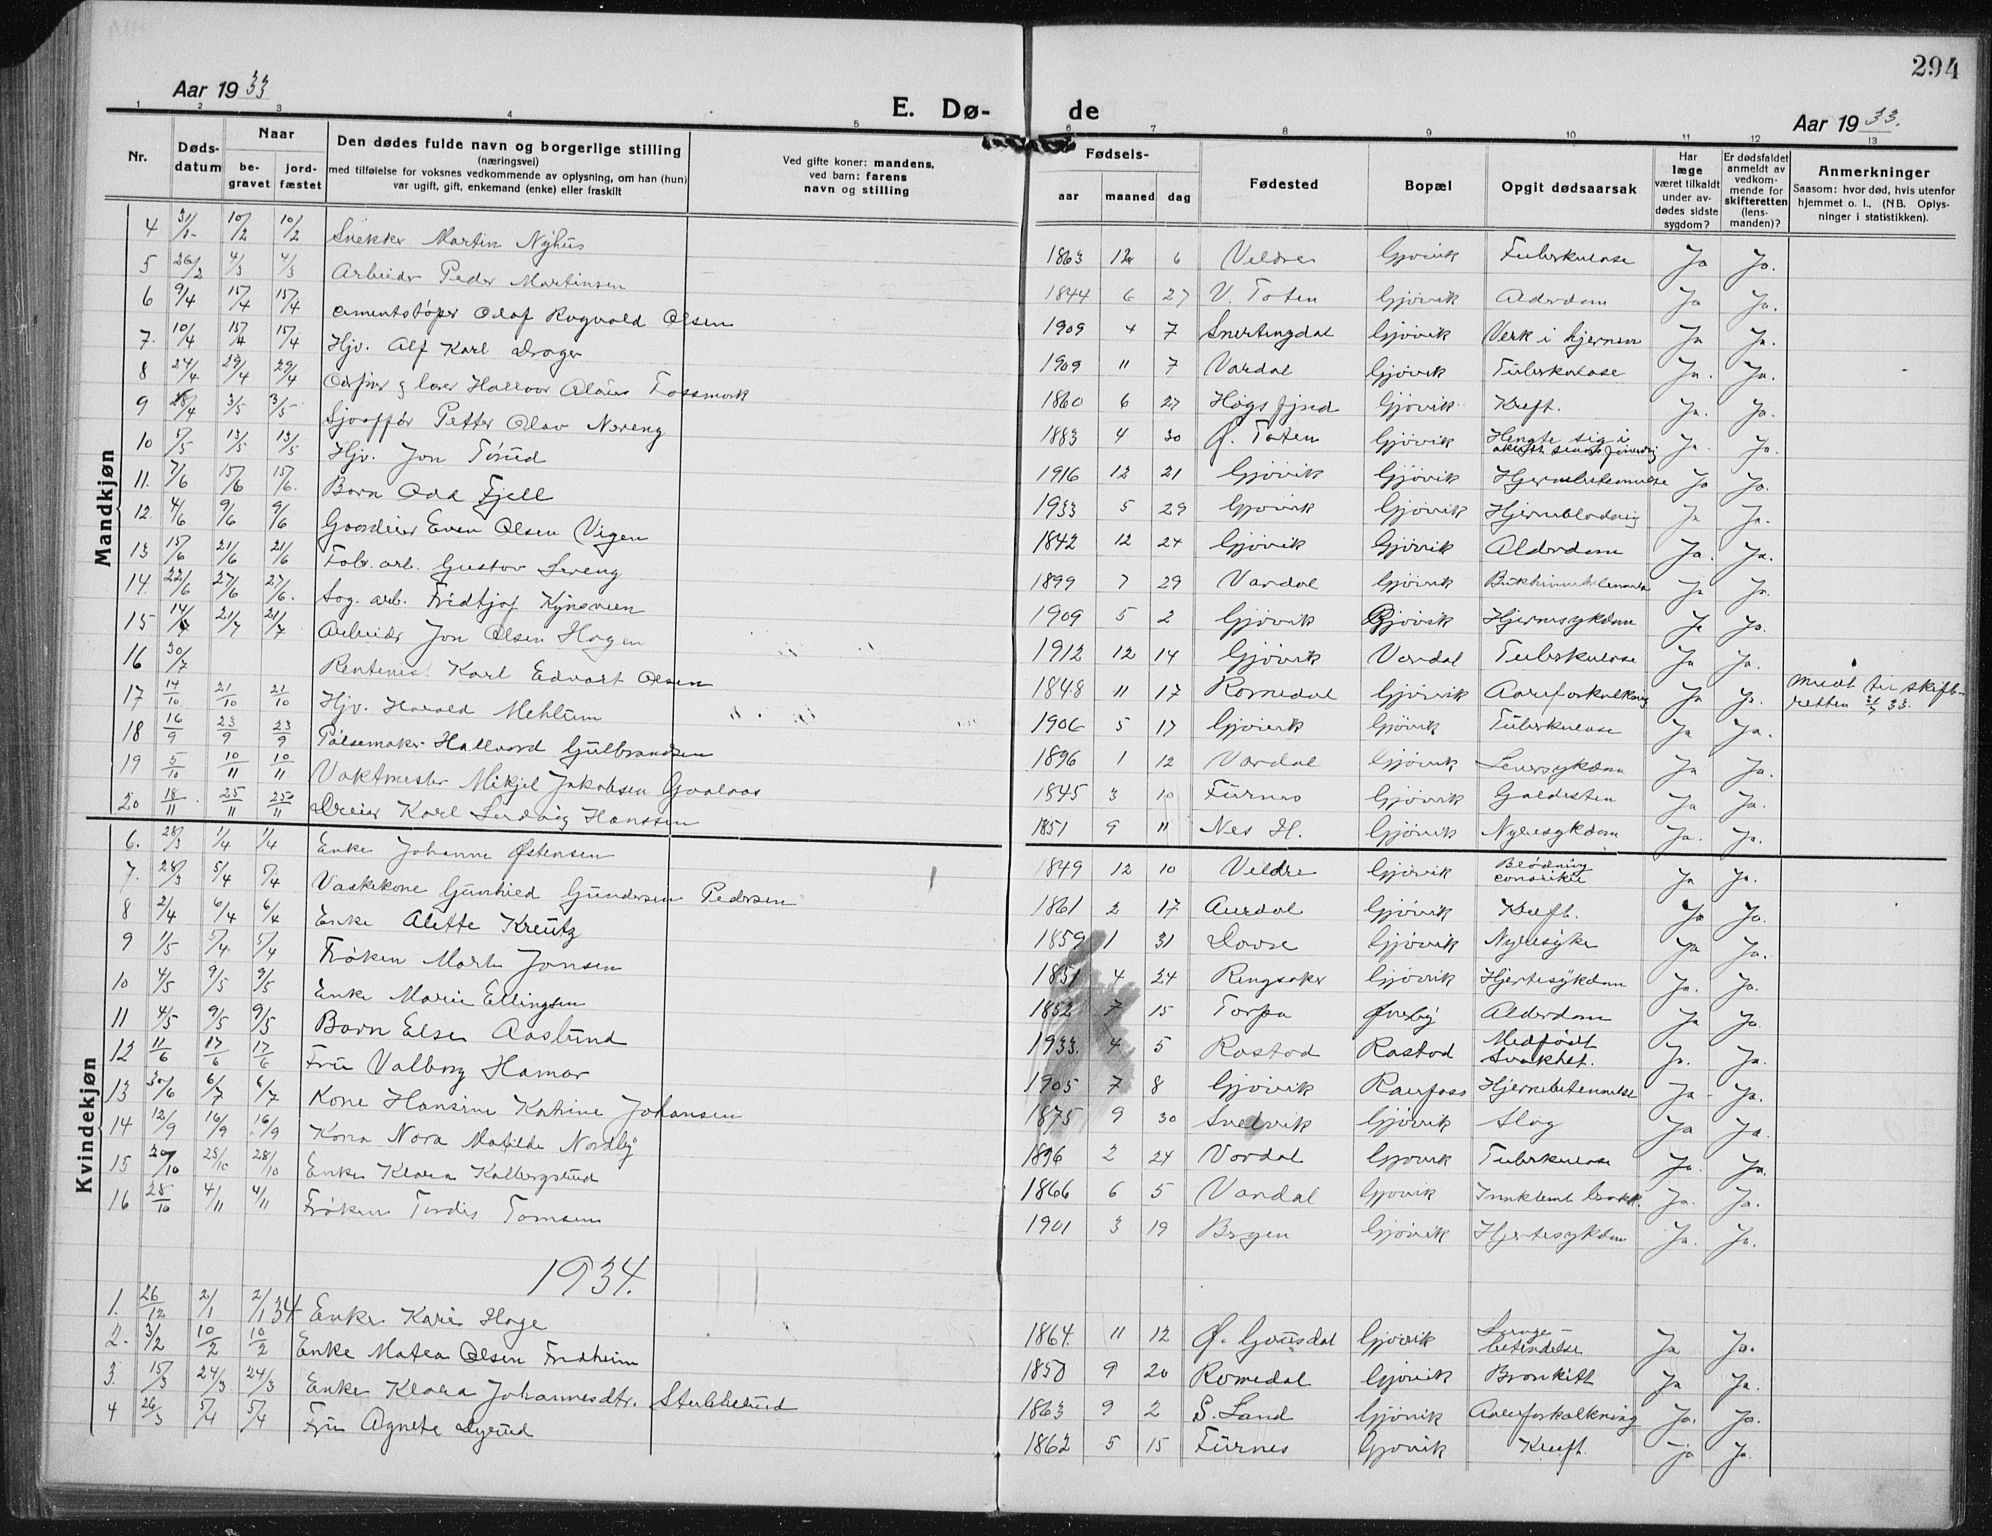 294
Aar 1933
E. Dø-
de
Aar 1933.
1 2 3 4 5 6 7 8 9 10 11 12 13
Nr.
Døds-
datum
Naar
be-
gravet
jord-
fæstet
Den dødes fulde navn og borgerlige stilling
(næringsvei)
med tilføielse for voksnes vedkommende av oplysning, om han (hun)
var ugift, gift, enkemand (enke) eller fraskilt
Ved gifte koner: mandens,
ved barn: farens
navn og stilling
Fødsels-
aar maaned dag
Fødested
Bopæl
Opgit dødsaarsak
Har
læge
været tilkaldt
under av-
dødes sidste
sygdom?
Er dødsfaldet
anmeldt av
vedkom-
mende for
skifteretten
(lens-
manden)?
Anmerkninger
Saasom: hvor død, hvis utenfor
hjemmet o. l., (NB. Oplys-
ninger i statistikken).
Mandkjøn
4 31/1 10/2 10/2 Snekker Martin Nyhus 1863 12 6 Veldre Gjövik Tuberkulose Ja Ja.
5 26/2 4/3 4/3 Arbeider Peder Martinsen 1844 6 27 V. Toten Gjövik Alderdom Ja Ja.
6 9/4 15/4 15/4 Cementstøper Olaf Ragvald Olsen 1909 4 7 Snertingdal Gjövik Verk i hjernen Ja Ja.
7. 10/4 15/4 15/4 Hjv. Alf Karl Drager 1909 11 7 Vardal Gjövik Tuberkulose Ja. Ja.
8 24/4 29/4 29/4 lærer Hallvor Fossmork 1860 6 27 Høgsfjord Gjövik Kreft. Ja. Ja.
9 28/4 3/5 3/5 Sjoaffør Petter Olav Nereng 1883 4 30 Ø. Toten Gjövik Hengte sig i Ja. Ja.
10 5/5 13/5 13/5 Hjv. Jon Tørud 1916 12 21 Gjövik Gjövik Hjernebetennelse Ja Ja.
11. 7/6 15/6 15/6. Barn Odd Fjell 1933 5 29 Gjövik Gjövik Hjerneblodnig Ja Ja.
12. 4/6 9/6 9/6 Gaardeier Even Olsen Vigen 1842 12 24 Gjövik Gjövik Alderdom Ja. Ja.
13 15/6 21/6 21/6 Fabr. arb. Gustav Sereng 1899 7 29 Vardal Gjövik Bukhinnebetennelse Ja Ja.
14. 22/6 27/6 27/6. Sag. arb. Fridtjof Kynsveen 1909 5 2 Gjövik Gjövik Hjernesykdom Ja Ja.
15 14/7 21/7 21/7 Arbeider Jon Olsen Hagen 1912 12 14 Gjövik Vardal Tuberkulose Ja Ja.
16 30/7 Rentenist Karl Edvart Olsen 1848 11 17 Romedal Gjövik Aareforkalkning Ja Ja. til skifte-
retten 33.
17 14/10 21/10 21/10 Hjv. Harald Mehlum 1906 5 17 Gjövik Gjövik Tuberkulose Ja Ja.
18 16/9 23/9 23/9 Pølsemaker Hallvard Gulbrandsen 1896 1 12 Vardal Gjövik Leversykdom Ja Ja.
19 5/10 10/11 10/11 Vaktmester Mikjel Jakobsen Gaalaas 1845 3 10 Furnes Gjövik Galdesten Ja Ja.
20 18/11 25/11 25/11 Dreier Karl Ludvig Hanssen 1851 9 11 Nes H. Gjövik Nyresykdom Ja. Ja.
Kvindekjøn
6. 28/3 1/4 1/4 Enke Johanne Østensen 1849 12 10 Veldre Gjövik Blødning Ja Ja.
7. 28/3 5/4 5/4 Vaskekone Gunhild Gundersen Pedersen 1861 2 17 Aurdal Gjövik Kreft. Ja Ja.
8 2/4 6/4 6/4 Enke Alette Kreutz 1859 1 31 Dovre Gjövik Nyresyke Ja Ja.
9 1/5 5/4 5/4 Frøken Marte Jonsen 1851 4 24 Ringsaker Gjövik Hjertesykdom Ja. Ja.
10 4/5 9/5 9/5 Enke Marie Ellingsen 1852 7 15 Torpa Øverby Alderdom Ja Ja.
11 4/5 9/5 9/5 Barn Else Aaslund 1933. 4 5 Rastad Rastad Medfødt
Svakhet. Ja. Ja.
12 11/6 17/6 17/6 Fru Valborg Hamar 1905 7 8 Gjövik Raufoss Hjernebetennelse Ja Ja.
13 30/6 6/7 6/7 Kone Hansine Katrine Johansen 1875 9 30 Svelvik Gjövik Slag Ja Ja.
14 12/9 16/9 16/9 Kona Nora Matilde Nordby 1896 2 24 Vardal Gjövik Tuberkulose Ja. Ja.
15 20/10 25/10 28/10 Enke Klara Kalbergstud 1866 6 5 Vardal Gjövik Innklemt brokk. Ja. Ja.
16 28/10 4/11 4/11 Frøken Tordis Tomsen 1901 3 19 Bygen Gjövik Hjertesykdom Ja. Ja.
1934.
1. 26/12 2/1 2/1 34 Enke Kari Hage 1864. 11 12 Ø. Gausdal Gjövik Lunge-
betendelse Ja Ja.
2. 3/2 10/2 10/2 Enke Matea Olsen Fridheim 1850 9 20 Romedal Gjövik Bronkitt Ja Ja.
3. 15/3 24/3 24/3 Enke Klara Johannesdtr. Stubbelund 1863 9 2 S. Land Gjövik Aareforkalkning Ja. Ja.
4 26/3 5/4 5/4 Fru Agnete Dyrud 1862 5 15 Furnes Gjövik Kreft. Ja Ja.